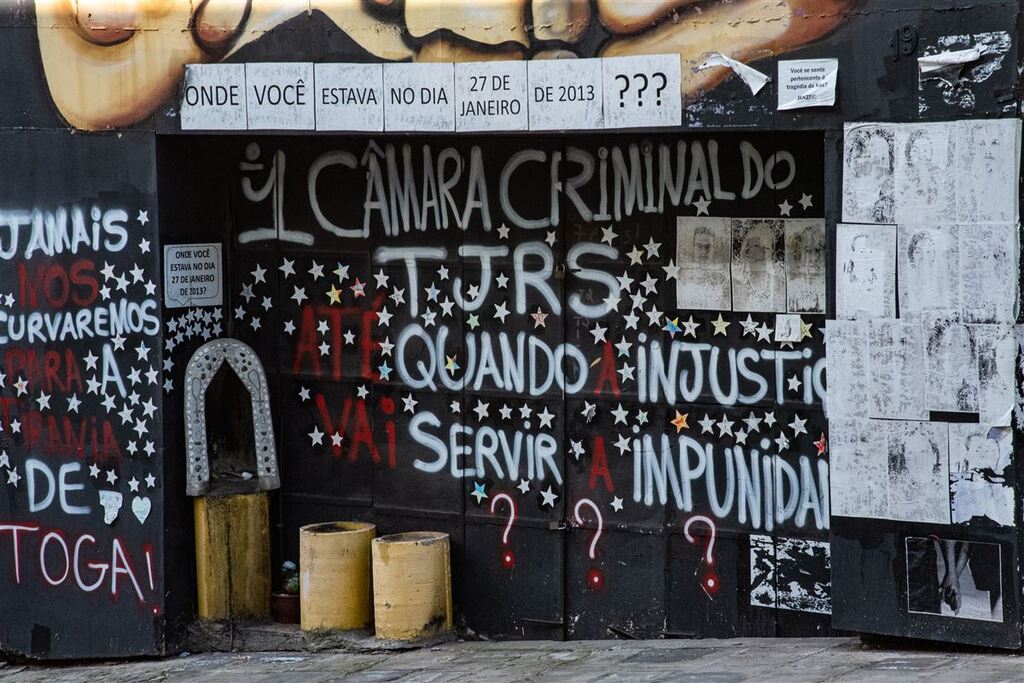 ONDE VOCÊ ESTAVA NO DIA 27 DE JANEIRO DE 2013 ???
Você se sente
pertencente à
tragédia da Kiss?
19
1 CÂMARA CRIMINAL DO
TJRS
ATÉ QUANDO A INJUSTIÇ
VAI SERVIR A IMPUNIDA
? ? ?
JAMAIS
NOS
CURVAREMOS
PARA A
TIRANIA
DE
TOGA!
ONDE VOCÊ
ESTAVA NO DIA
27 DE JANEIRO
DE 2013?